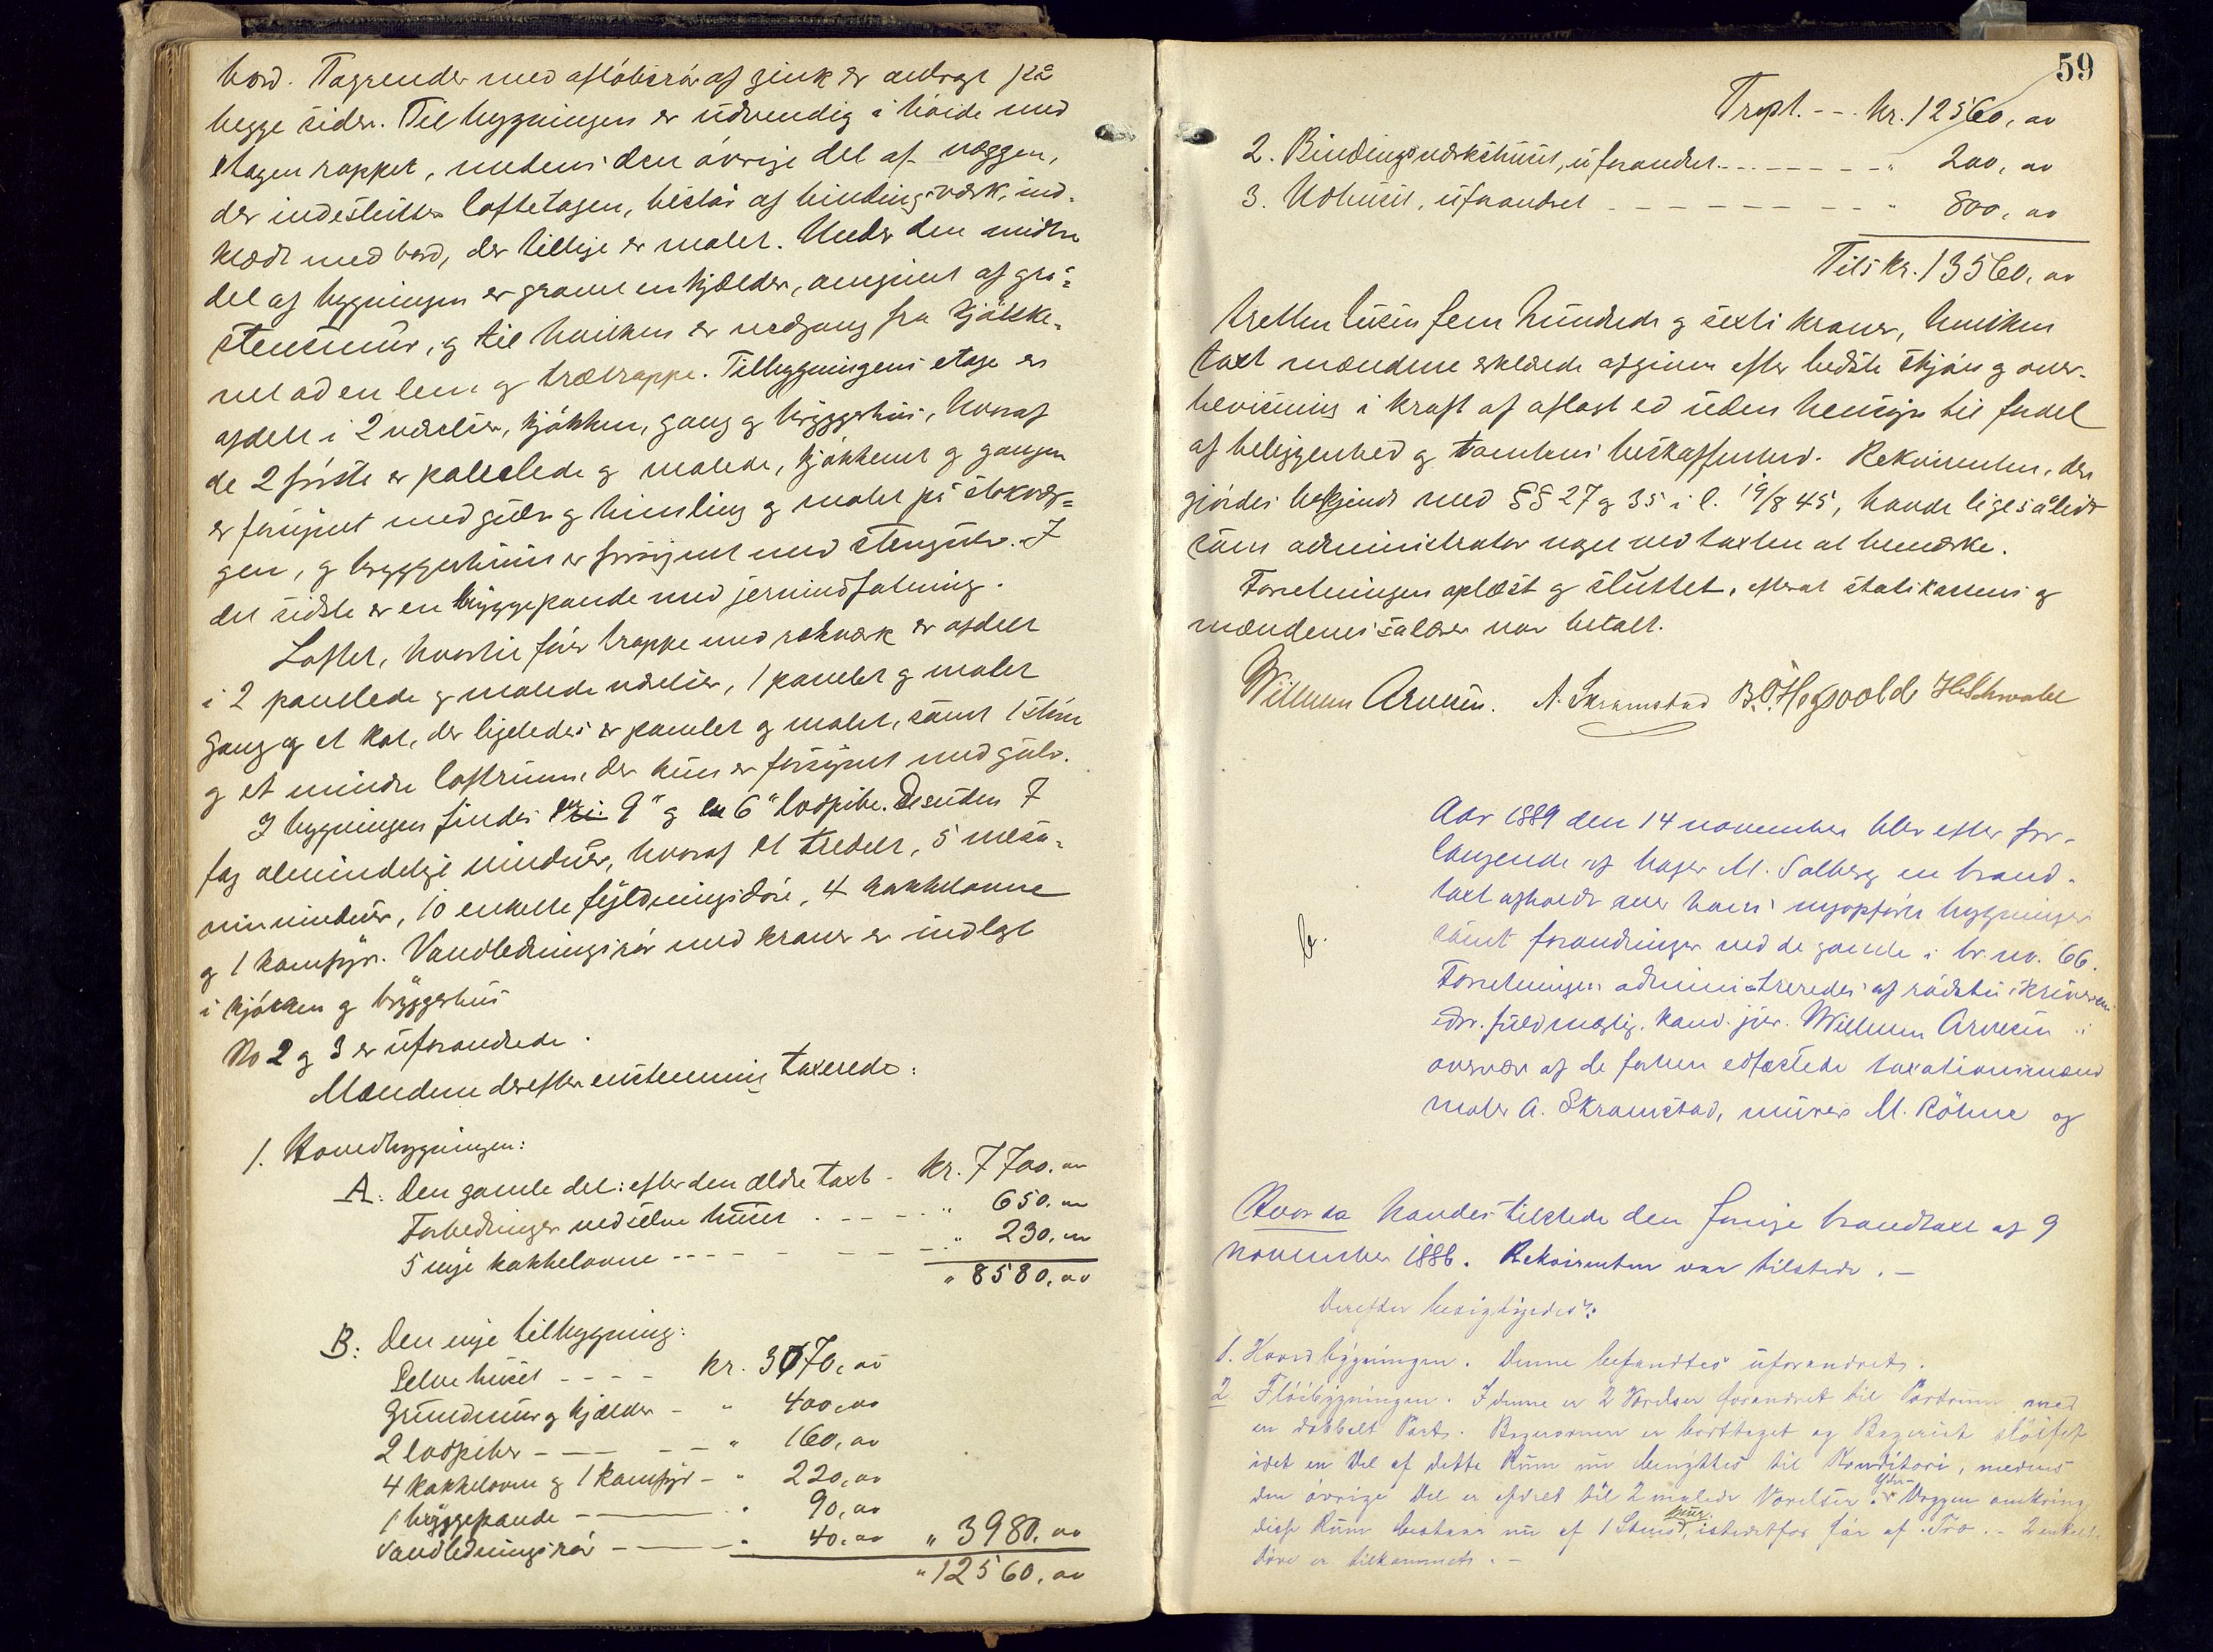 bord. Tagrender med afløbsrør af zink er anbragt på
begge sider. Tilbygningen er udvendig i høide med
etagen rappet, medens den øvrige del af væggen,
der indeslutter loftetagen, består af bindingsværk, ind-
klædt med bord, der tillige er malet. Under den midtre
del af bygningen er gravet en kjælder, omgivet af grå-
stensmur, og til hvilken er nedgang fra kjøkke-
net ad en lem og trætrappe. Tilbygningens etage er
afdelt i 2 værelser, kjøkken, gang og bryggerhus, hvoraf
de 2 første er panelede og malede, kjøkkenet og gangen
er forsynet med gulv og himling og malet på stokvæg-
gen, og bryggerhuset er forsynet med stengulv. I
det sidste er en bryggepande med jernindfatning.
Loftet, hvortil fører trappe med rekværk er afdelt
i 2 panelede og malede værelser, 1 panelet og malet
gang og et kot, der ligeledes er panelet og malet, samt 1
og et mindre loftrum, der kun er forsynet med gulv.
I bygningen findes en 9" og en 6" lodpibe. Desuden 7
fag almindelige vinduer, hvoraf et tredelt, 5 mesa-
ninvinduer, 10 enkelte fyldningsdøre, 4 kakkelovne
og 1 komfyr. Vandledningsrør med kraner er indlagt
i kjøkken og bryggerhus
No 2 og 3 er uforandrede.
Mændene derefter enstemmig taxerede:
1. Hovedbygningen:
A: Den gamle del: efter den ældre taxt - kr. 7700. 00
Forbedringer ved selve huset . - - - - " 650. 00
5 nye kakkelovne - - - - - - - " 230. 00
" 8580. 00
B: Den nye tilbygning:
Selve huset - - - - kr. 3070. 00
Grundmur og kjælder - " 400. 00
2 lodpiber - - - - " 160. 00
4 kakkelovne og 1 komfyr - " 220. 00
1 bryggepande - - - " 90. 00
Vandledningsrør - - - " 40. 00 " 3980. 00
" 12560. 00
59
Trspt. - - kr. 12560. 00
2. Bindingsværkshuset, uforandret - - - - - " 200. 00
3. Udhuset, uforandret - - - - - - " 800. 00
Tils kr. 13560. 00
tretten tusen fem hundrede og sexti kroner, hvilken
taxt mændene erklærede afgiven efter bedste skjøn og over-
bevisning i kraft af aflagt ed uden hensyn til fordel
af beliggenhed og tomtens beskaffenhed. Rekvirenten, der
gjordes bekjendt med §§ 27 og 35 i l. 19/8 45, havde ligesålidt
som administrator noget ved taxten at bemærke.
Forretningen oplæst og sluttet, efterat statskassens og
mændenes salærer var betalt.
Wilhelm Arnesen. A. Skramstad B. O. Hegsvold H. Schwabe
Aar 1889 den 14 november blev efter for-
langende af bager M. Solberg en brand-
taxt afholdt over hans nyopførte bygninger
samt forandringer ved de gamle i br. no. 66.
Forretningen administreredes af rådstuskriverens
edsv. fuldmægtig. kand. jur. Wilhelm Arnesen i
overvær af de forhen edfæstede taxationsmænd
maler A. Skramstad, murer M. Röhne og
Hvorda havdes tilstede den forrige brandtaxt af 9
november 1886. Rekvirenten var tilstede. -
Derefter besigtigedes:
1. Hovedbygningen. Denne befandtes uforandret.
2 Fløibygningen. I denne er 2 Værelser forandret til Portrum med
en dobbelt Port. Bagerovnen er borttaget og Bageriet sløifet
idet en Del af dette Rum nu benyttes til Konditori, medens
den øvrige Del er afdelt til 2 malede Værelser. Yder-Væggen omkring
disse Rum bestaar nu af 1 Stens mur, istedetfor før af Træ. - 2 enkelt
Døre er tilkommet. -